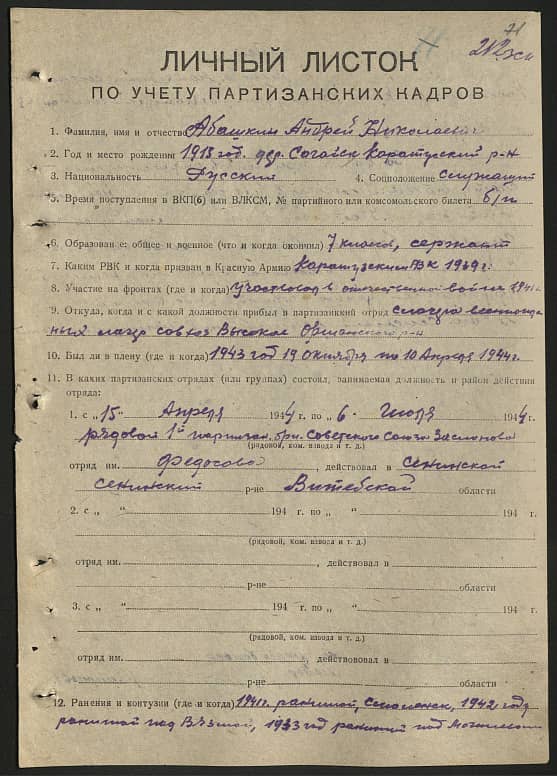 71
ЛИЧНЫЙ ЛИСТОК
ПО УЧЕТУ ПАРТИЗАНСКИХ КАДРОВ
1. Фамилия, имя и отчество Абашкин Андрей Николаевич
2. Год и место рождения 1913 год. дер. Сагайск Каратуский р-н
3. Национальность Русский 4. Соцположение служащий
5. Время поступления в ВКП(б) или ВЛКСМ, № партийного или комсомольского билета б/п
6. Образование: общее и военное (что и когда окончил) 7 классов, сержант
7. Каким РВК и когда призван в Красную Армию Каратузским РВК 1939 г.
8. Участие на фронтах (где и когда) Участвовал в отечественной войне 1941
9. Откуда, когда и с какой должности прибыл в партизанский отряд с лагера военнопле
ных лагр совхоз Высокое Оршанского р-н
10. Был ли в плену (где и когда) 1943 год 19 октября по 10 Апреля 1944 г.
11. В каких партизанских отрядах (или группах) состоял, занимаемая должность и район действия
отряда:
1. с „15" Апреля 1944 г. по „6" Июля 1944 г.
рядовой 1й партизан. бри. Советского Союза Заслонова
(рядовой, ком. взвода и т. д.)
отряд им. Федосова, действовал в сенинской
сенинский р-не Витебской области
2. с „ " 194 г. по „ " 194 г.
(рядовой, ком. взвода и т. д.)
отряд им. , действовал в
р-не области
3. с „ " 194 г. по „ " 194 г.
(рядовой, ком. взвода и т. д.)
отряд им. , действовал в
р-не области
12. Ранения и контузии (где и когда) 1941 г. раненой, Смоленск, 1942 году
раненой под Вязмой, 1943 год раненый под